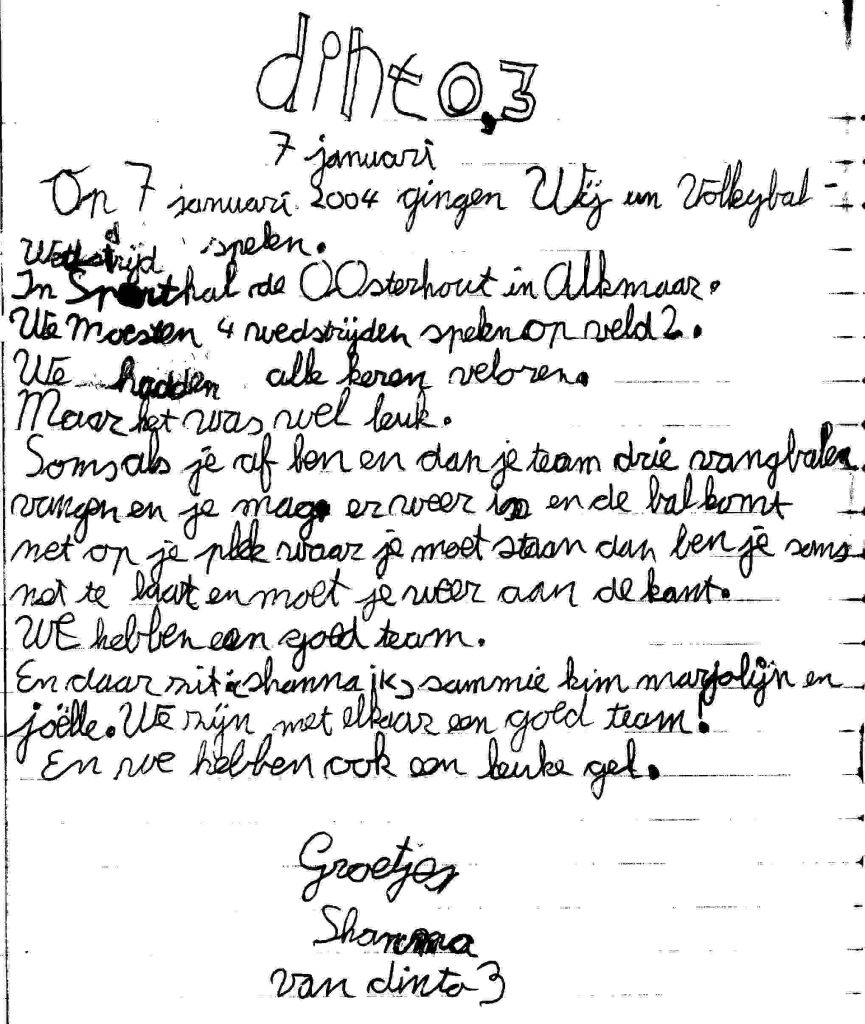 dinto,3
7 januari
Op 7 januari 2004 gingen Wij een Volleybal-
Wedstrijd spelen.
In Sporthal de OOsterhout in Alkmaar.
We Moesten 4 wedstrijden spelen op veld 2.
We hadden alle keren veloren.
Maar het was wel leuk.
Soms als je af ben en dan je team drie vangbalen
vangen en je mag er weer in en de bal komt
net op je plek waar je moet staan dan ben je soms
net te laat en moet je weer aan de kant.
WE hebben een goed team.
En daar zit shanna ik, sammie kim marjolijn en
joëlle. We zijn met elkaar een goed team!
En we hebben ook een leuke gel.
Groetjes
Shanna
van dinto 3